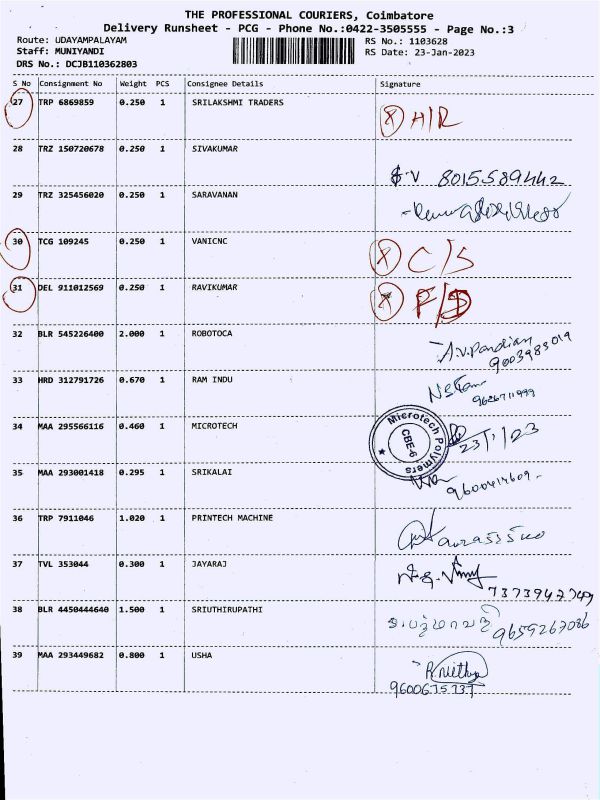 THE PROFESSIONAL COURIERS, Coimbatore
Delivery Runsheet - PCG - Phone No.:0422-3505555 - Page No.:3
Route: UDAYAMPALAYAM RS No.: 1103628
Staff: MUNIYANDI RS Date: 23-Jan-2023
DRS No.: DCJB110362803
S No Consignment No Weight PCS Consignee Details Signature
27 TRP 6869859 0.250 1 SRILAKSHMI TRADERS
X H/R
28 TRZ 150720678 0.250 1 SIVAKUMAR
S.V 8015589442
29 TRZ 325456020 0.250 1 SARAVANAN
30 TCG 109245 0.250 1 VANICNC
X C/S
31 DEL 911012569 0.250 1 RAVIKUMAR
X F/S
32 BLR 545226400 2.000 1 ROBOTOCA
A.V.Pandian
9003983019
33 HRD 312791726 0.670 1 RAM INDU
9626711999
34 MAA 295566116 0.460 1 MICROTECH
Microtech Polymers
CBE-6
23/1/23
35 MAA 293001418 0.295 1 SRIKALAI
9600414609
36 TRP 7911046 1.020 1 PRINTECH MACHINE
37 TVL 353044 0.300 1 JAYARAJ
7373947749
38 BLR 4450444640 1.500 1 SRIUTHIRUPATHI
9659267086
39 MAA 293449682 0.800 1 USHA
9600675737